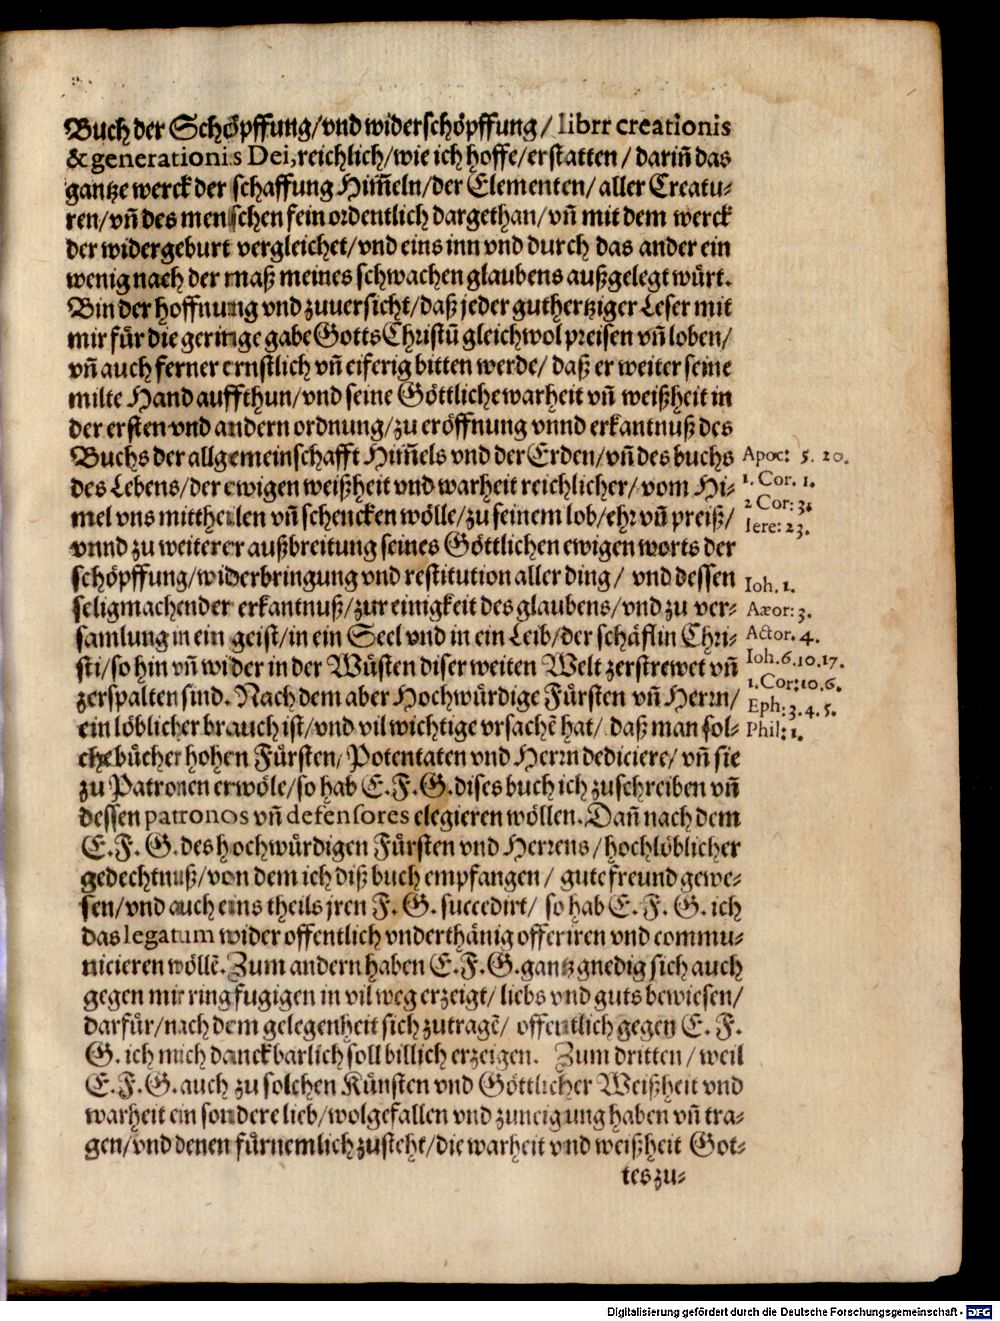 Buch der Schöpffung/vnd widerschöpffung/librr creationis
& generationis Dei,reichlich/wie ich hoffe/erstatten/darin̄ das
gantze werck der schaffung Him̄eln/der Elementen/aller Creatu-
ren/vn̄ des menschen fein ordentlich dargethan/vn̄ mit dem werck
der widergeburt vergleichet/vnd eins inn vnd durch das ander ein
wenig nach der maß meines schwachen glaubens außgelegt würt.
Bin der hoffnung vnd zuuersicht/daß jeder guthertziger Leser mit
mir für die geringe gabe Gotts Christū gleichwol preisen vn̄ loben/
vn̄ auch ferner ernstlich vn̄ eiferig bitten werde/daß er weiter seine
milte Hand auffthun/vnd seine Göttliche warheit vn̄ weißheit in
der ersten vnd andern ordnung/zu eröffnung vnnd erkantnuß des
Buchs der allgemeinschafft Him̄els vnd der Erden/vn̄ des buchs
des Lebens/der ewigen weißheit vnd warheit reichlicher/vom Hi-
mel vns mittheilen vn̄ schencken wölle/zu seinem lob/ehr vn̄ preiß/
vnnd zu weiterer außbreitung seines Göttlichen ewigen worts der
schöpffung/widerbringung vnd restitution aller ding/ vnd dessen
seligmachender erkantnuß/zur einigkeit des glaubens/vnd zu ver-
samlung in ein geist/in ein Seel vnd in ein Leib/der schäflin Chri-
sti/so hin vn̄ wider in der Wüsten diser weiten Welt zerstrewet vn̄
zerspalten sind. Nach dem aber Hochwürdige Fürsten vn̄ Herrn/
ein löblicher brauch ist/vnd vil wichtige vrsachē hat/daß man sol-
che bücher hohen Fürsten/Potentaten vnd Herrn dediciere/vn̄ sie
zu Patronen erwöle/so hab E.F.G.dises buch ich zuschreiben vn̄
dessen patronos vn̄ defensores elegieren wöllen.Dan̄ nach dem
E.F.G.des hochwürdigen Fürsten vnd Herrens/hochlöblicher
gedechtnuß/von dem ich diß buch empfangen/ gute freund gewe-
sen/vnd auch eins theils jren F.G.succedirt/ so hab E.F.G.ich
das legatum wider offentlich vnderthänig offeriren vnd commu-
nicieren wöllē.Zum andern haben E.F.G.gantz gnedig sich auch
gegen mir ringfugigen in vil weg erzeigt/liebs vnd guts bewiesen/
darfür/nach dem gelegenheit sich zutragē/ offentlich gegen E.F.
G.ich mich danckbarlich soll billich erzeigen. Zum dritten/weil
E.F.G.auch zu solchen Künsten vnd Göttlicher Weißheit vnd
warheit ein sondere lieb/wolgefallen vnd zuneigung haben vn̄ tra-
gen/vnd denen fürnemlich zusteht/die warheit vnd weißheit Got-
tes zu-
Apoc: 5. 20.
1. Cor. 1.
2 Cor: 3.
Iere: 23.
Ioh. 1.
Axor: 3.
Actor. 4.
Ioh.6.10.17.
1.Cor:10.6.
Eph:3.4.5.
Phil: 1.
Digitalisierung gefördert durch die Deutsche Forschungsgemeinschaft - DFG